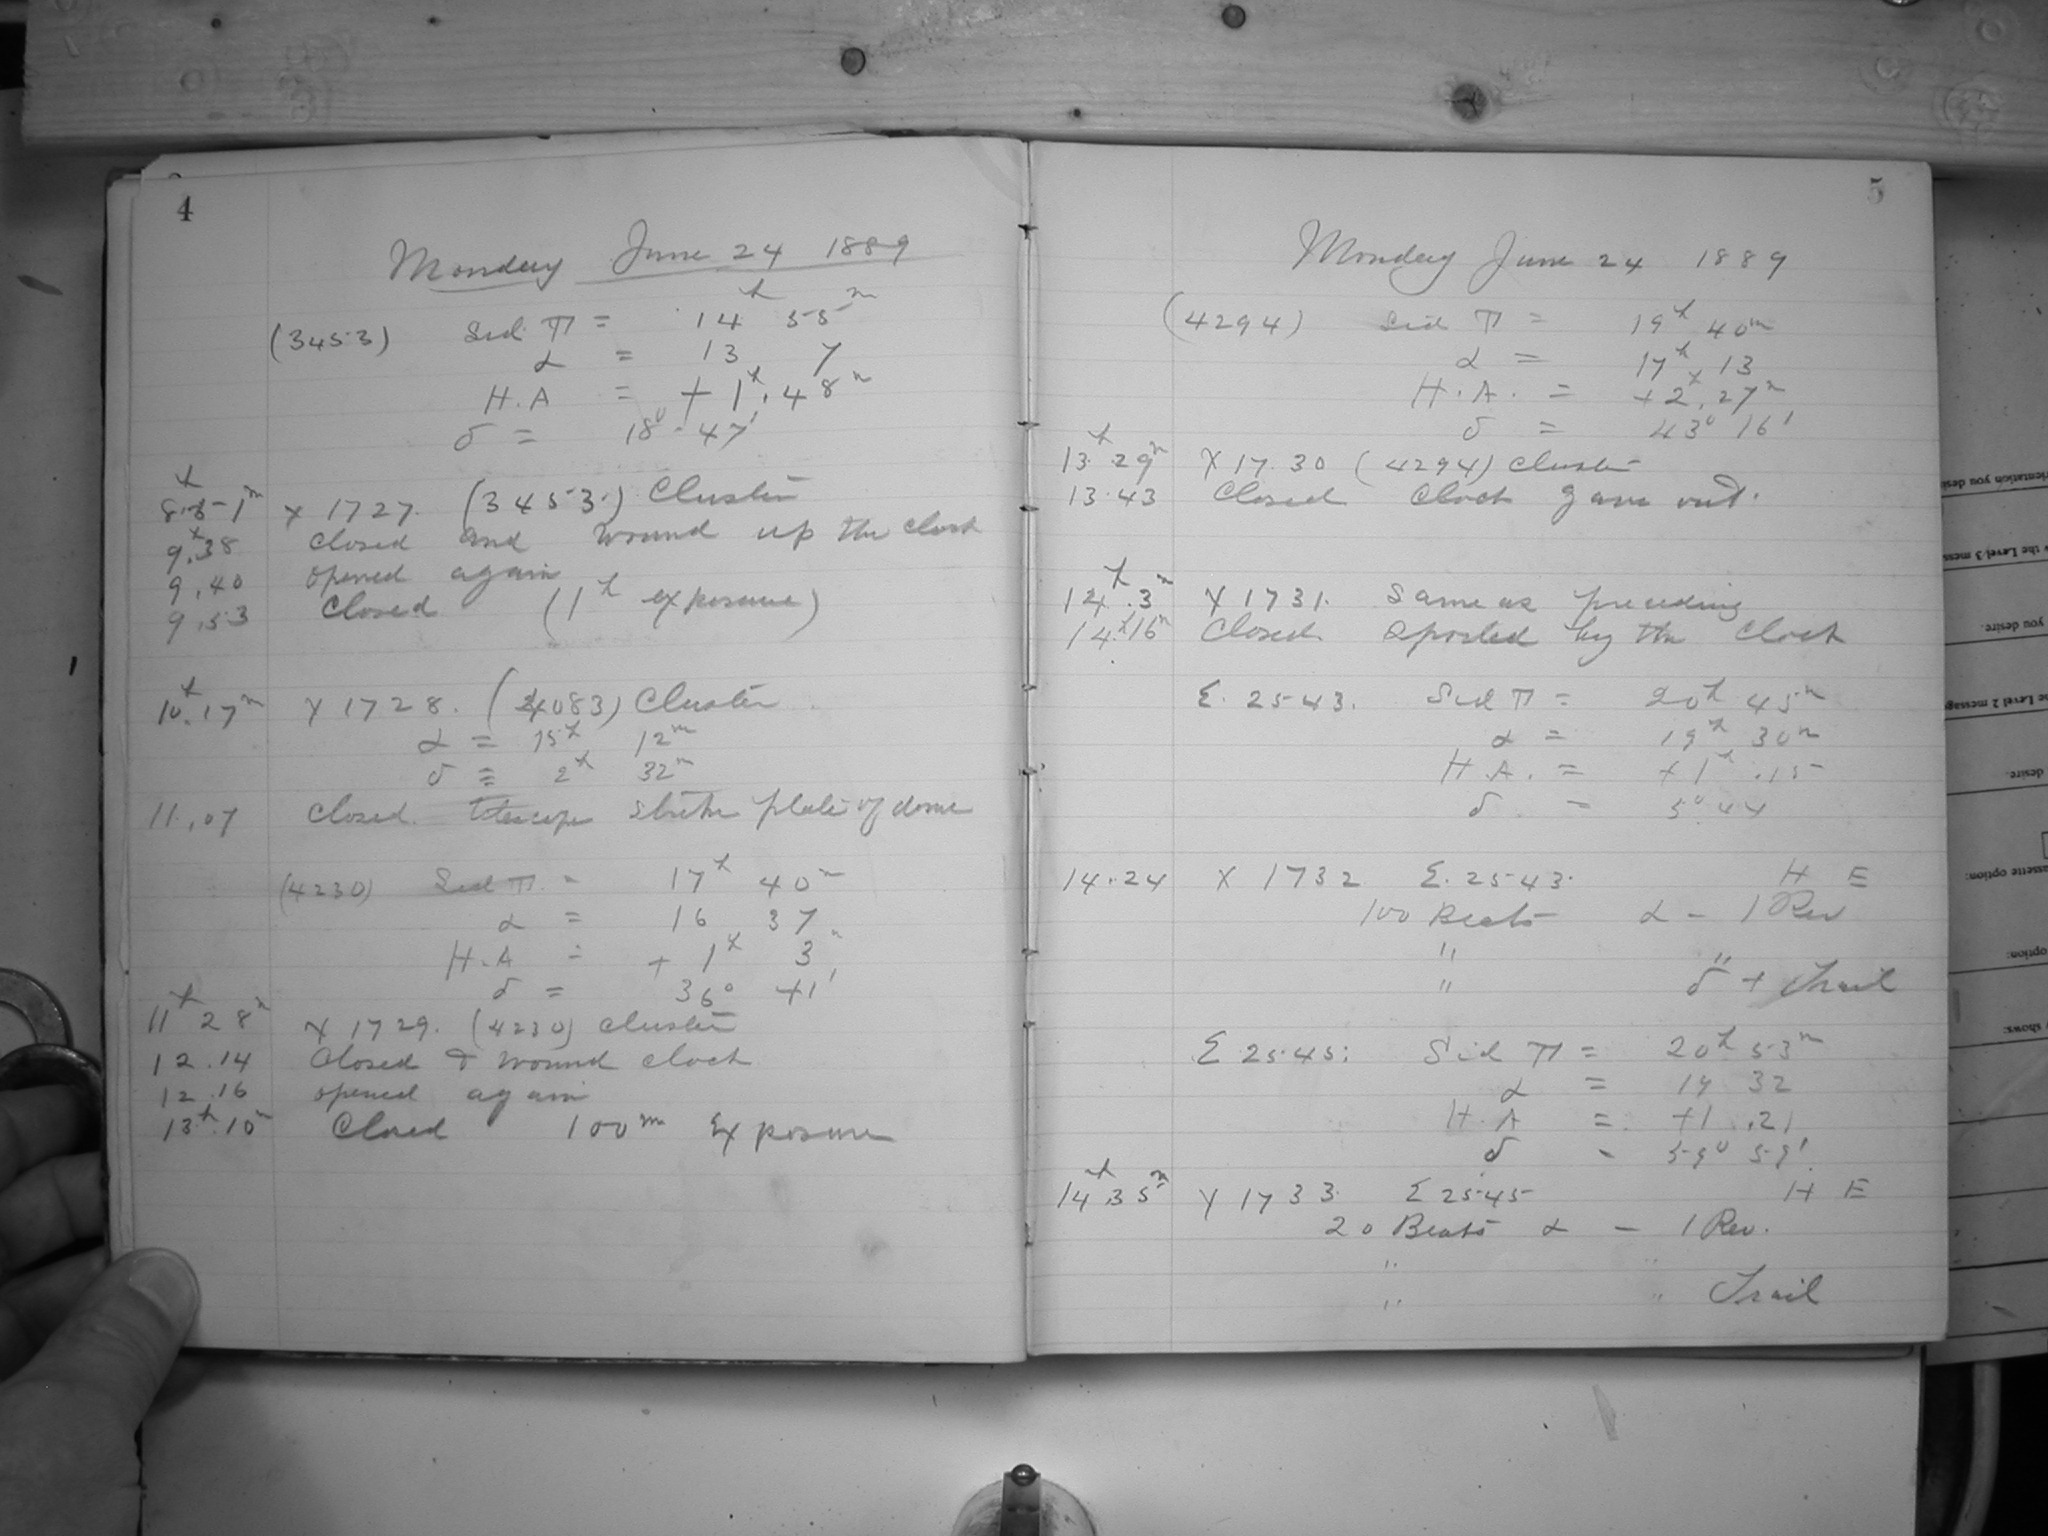 4
Monday June 24 1889
(3453) Sid. T = 14h 55m
α = 13 7
H.A = + 1h.48m
δ = 18° 47'
8.51m X 1727. (3453.) Cluster
9h.38 Closed and wound up the clock
9.40 opened again
9.53 Closed (1h exposure)
10h.17m X 1728. (4083) Cluster
α = 15h 12m
δ = 2h 32m
11.07 Closed. telescope struck plate of dome
(4230) Sid T = 17h 40m
α = 16 37
H.A = + 1h 3m
δ = 36° 41'
11h 28m X 1729. (4230) Cluster
12.14 Closed & wound clock
12.16 opened again
13h.10m Closed 100m Exposure
5
Monday June 24 1889
(4294) Sid T = 19h 40m
α = 17h 13
H.A. = +2h.27m
δ = 43° 16'
13h.29m X 17.30 (4294) Cluster
13.43 Closed Clock gave out.
14h.3m X 1731. Same as preceding
14h16m Closed. Spoiled by the Clock
Σ. 2543. Sid T = 20h 45m
α = 19h 30m
H.A. = +1h.15
δ = 5° 44
14.24 X 1732 Σ. 2543. H E
100 Beats α - 1 Rev
" "
" δ + Trail
Σ 2545: Sid T = 20h 53m
α = 19 32
H.A = +1.21
δ = 59° 59'
14h.35m X 1733. Σ 2545 H E
20 Beats α - 1 Rev.
" "
" " Trail